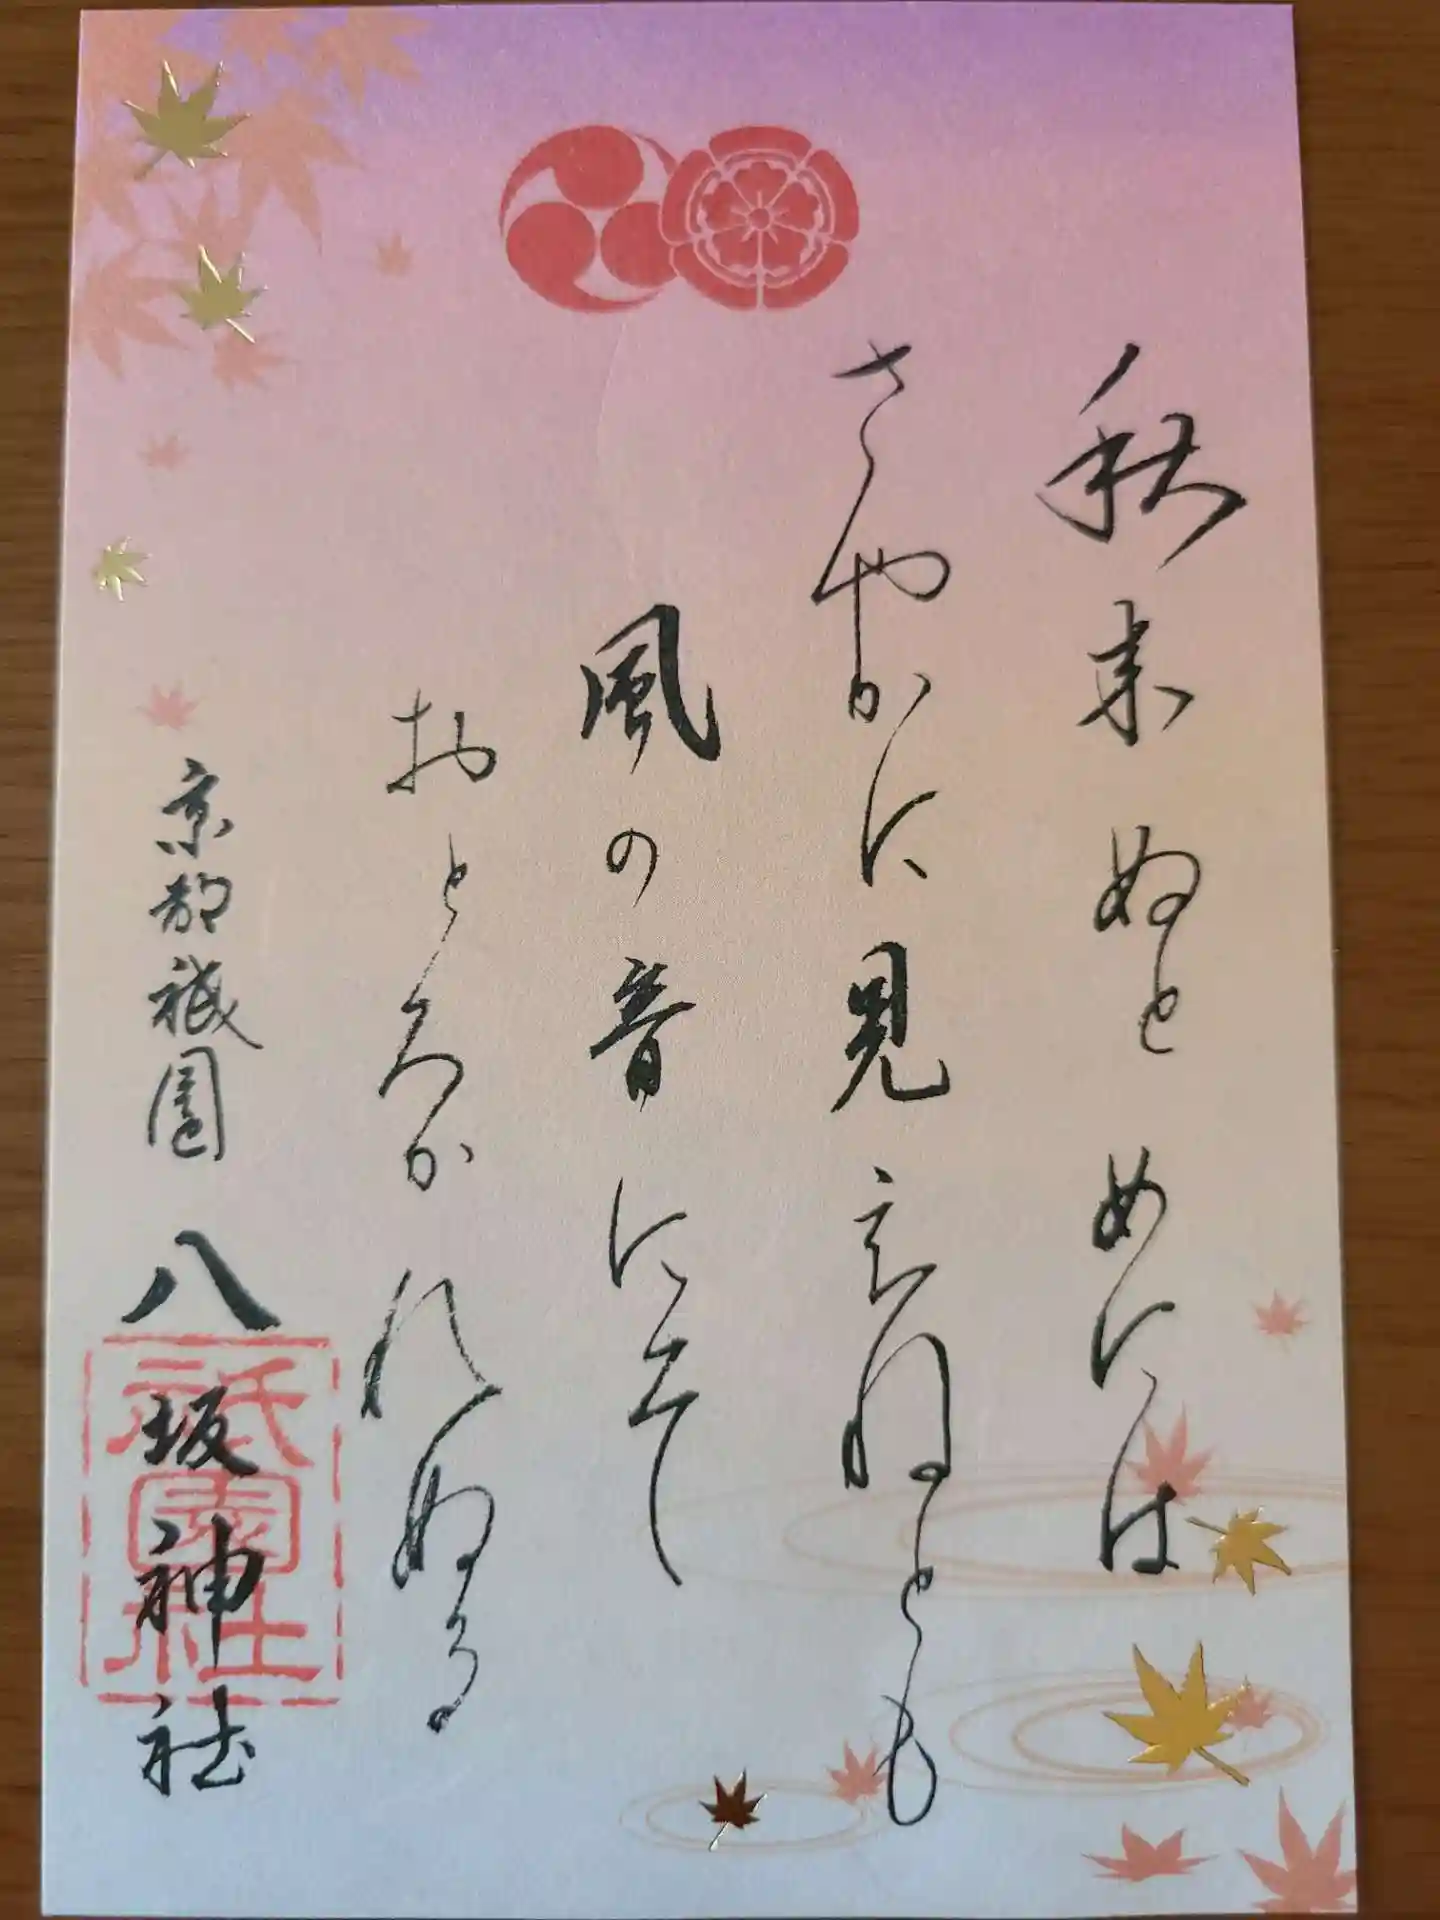 秋来ぬとめには
さやかに見えねとも
風の音にそ
おとろかれぬる
京都祇園 八坂神社
祇園社